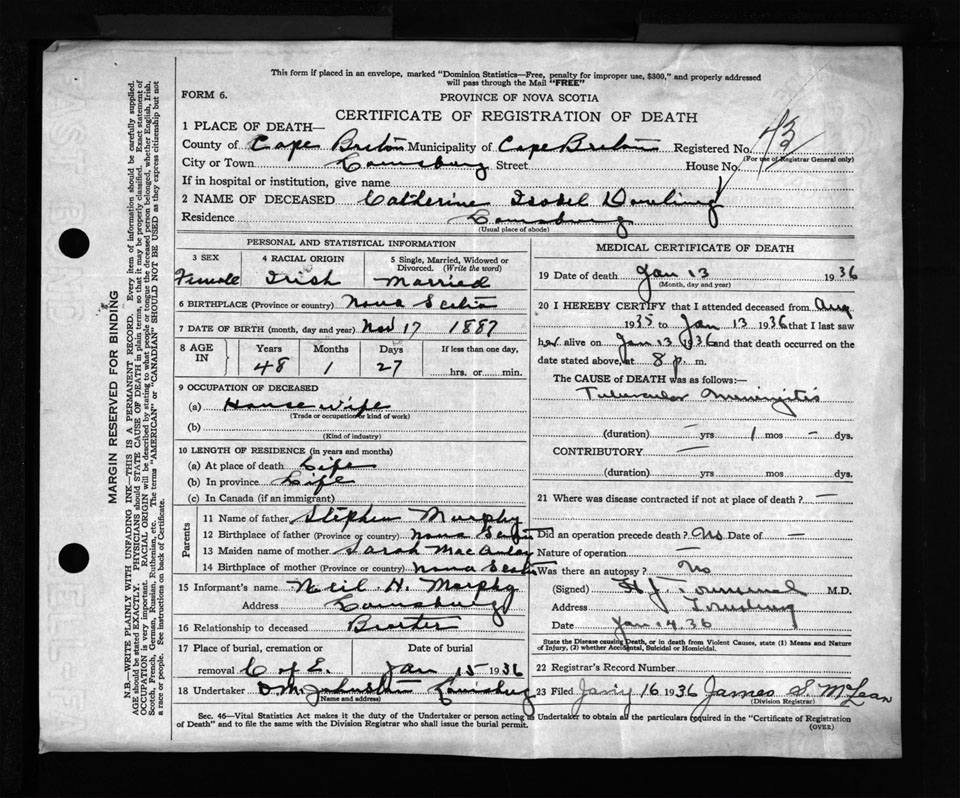 This form if placed in an envelope, marked "Dominion Statistics—Free, penalty for improper use, $300," and properly addressed
will pass through the Mail "FREE"
FORM 6.
PROVINCE OF NOVA SCOTIA
CERTIFICATE OF REGISTRATION OF DEATH
1 PLACE OF DEATH—
County of Cape Breton Municipality of Cape Breton Registered No. 43
(For use of Registrar General only)
City or Town Louisburg Street House No.
If in hospital or institution, give name
2 NAME OF DECEASED Catherine Isobel Dowling
Residence Louisburg
(Usual place of abode)
PERSONAL AND STATISTICAL INFORMATION
3 SEX
Female
4 RACIAL ORIGIN
Irish
5 Single, Married, Widowed or
Divorced. (Write the word)
Married
6 BIRTHPLACE (Province or country) Nova Scotia
7 DATE OF BIRTH (month, day and year) Nov 17 1887
8 AGE IN
Years Months Days If less than one day,
48 1 27 hrs. or min.
9 OCCUPATION OF DECEASED
(a) House wife
(Trade or occupation or kind of work)
(b)
(Kind of industry)
10 LENGTH OF RESIDENCE (in years and months)
(a) At place of death Life
(b) In province Life
(c) In Canada (if an immigrant)
Parents
11 Name of father Stephen Murphy
12 Birthplace of father (Province or country) Nova Scotia
13 Maiden name of mother Sarah MacAulay
14 Birthplace of mother (Province or country) Nova Scotia
15 Informant's name Neil H. Murphy
Address Louisburg
16 Relationship to deceased Brother
17 Place of burial, cremation or
removal C of E.
Date of burial
Jan 15 1936
18 Undertaker D M Johnston Louisburg
(Name and address)
MEDICAL CERTIFICATE OF DEATH
19 Date of death Jan 13 1936
(Month, day and year)
20 I HEREBY CERTIFY that I attended deceased from Aug
1935 to Jan 13 1936 that I last saw
her alive on Jan 13 1936 and that death occurred on the
date stated above, at 8 p. m.
The CAUSE OF DEATH was as follows:—
Tubercular Meningitis
(duration) — yrs 1 mos — dys.
CONTRIBUTORY —
(duration) yrs mos dys.
21 Where was disease contracted if not at place of death? —
Did an operation precede death? No Date of —
Nature of operation —
Was there an autopsy? No
(Signed) H J M.D.
Address
Date Jan 14 36
State the Disease causing Death, or in death from Violent Causes, state (1) Means and Nature
of Injury, (2) whether Accidental, Suicidal or Homicidal.
22 Registrar's Record Number
23 Filed Jan'y 16 1936 James S. McLean
(Division Registrar)
Sec. 46—Vital Statistics Act makes it the duty of the Undertaker or person acting as Undertaker to obtain all the particulars required in the "Certificate of Registration
of Death" and to file the same with the Division Registrar who shall issue the burial permit.
(OVER)
MARGIN RESERVED FOR BINDING
N.B.—WRITE PLAINLY WITH UNFADING INK—THIS IS A PERMANENT RECORD. Every item of information should be carefully supplied.
AGE should be stated EXACTLY. PHYSICIANS should STATE CAUSE OF DEATH in plain terms, so that it may be properly classified. Exact statement of
OCCUPATION is very important. RACIAL ORIGIN will be described by stating to what people or tongue the deceased person belonged, whether English, Irish,
Scotch, French, German, Russian, Ruthenian, etc. The terms "AMERICAN" or "CANADIAN" SHOULD NOT BE USED as they express citizenship but not
a race or people. See instructions on back of Certificate.